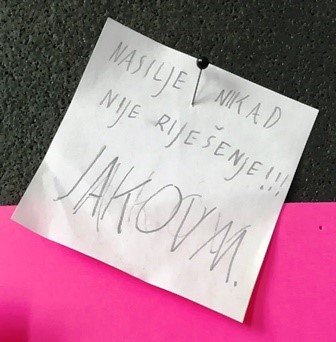 NASILJE NIKAD
NIJE RIJEŠENJE!!!
JAKOV M.